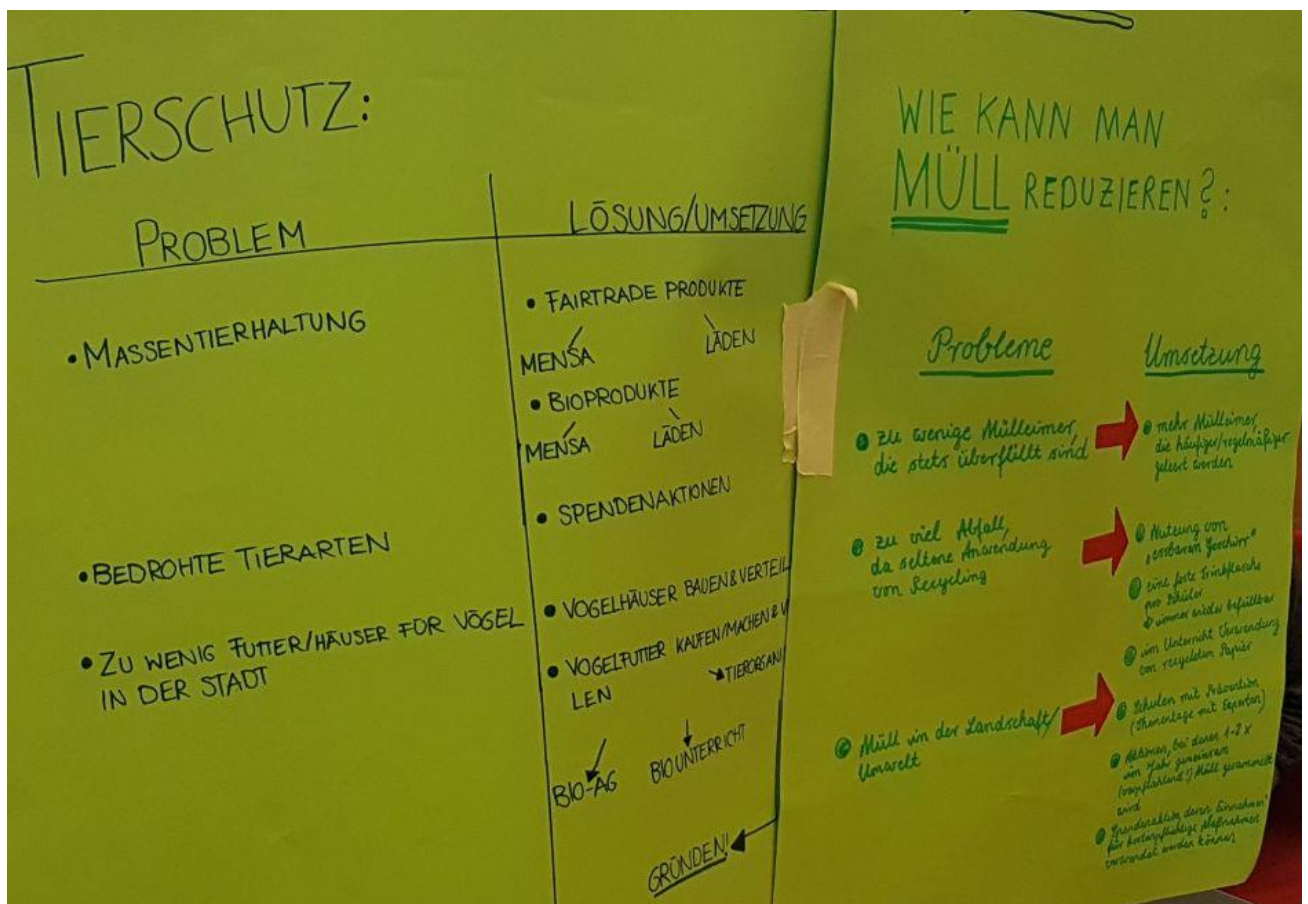 TIERSCHUTZ:
PROBLEM
LÖSUNG/UMSETZUNG
• MASSENTIERHALTUNG
• FAIRTRADE PRODUKTE
MENSA LÄDEN
• BIOPRODUKTE
MENSA LÄDEN
• SPENDENAKTIONEN
• BEDROHTE TIERARTEN
• ZU WENIG FUTTER/HÄUSER FÜR VÖGEL
IN DER STADT
• VOGELHÄUSER BAUEN & VERTEIL
• VOGELFUTTER KAUFEN/MACHEN & V
LEN
TIERORGANI
BIO-AG BIOUNTERRICHT
GRÜNDEN!
WIE KANN MAN
MÜLL REDUZIEREN?:
Probleme
Umsetzung
• zu wenige Mülleimer,
die stets überfüllt sind
• mehr Mülleimer,
die häufiger/regelmäßiger
geleert werden
• zu viel Abfall,
da seltene Anwendung
von Recycling
• Nutzung von
„essbarem Geschirr"
• eine feste Trinkflasche
pro Schüler
immer wieder befüllbar
• im Unterricht Verwendung
von recyceltem Papier
• Müll in der Landschaft/
Umwelt
• Schulen mit Prävention
(Thementage mit Experten)
• Aktionen, bei denen 1-2 x
im Jahr gemeinsam
Müll gesammelt
wird
• Spendenaktion, deren Einnahmen
für kostenpflichtige Maßnahmen
verwendet werden können